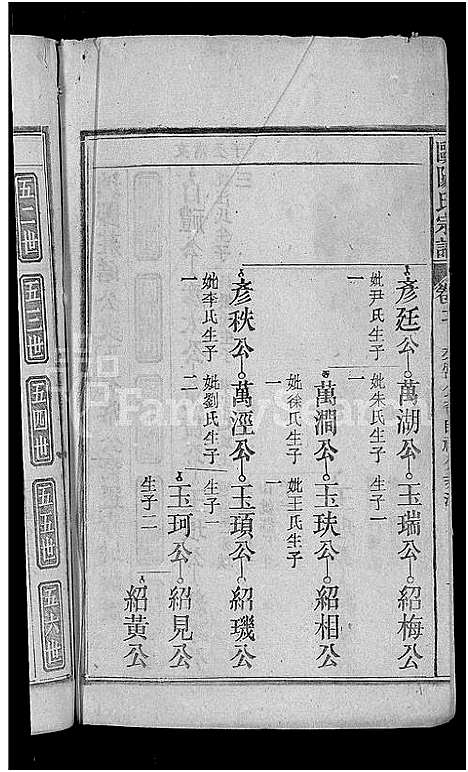 歐陽氏宗譜
彥廷公
妣尹氏生子一
萬湖公
妣朱氏生子一
玉瑞公
紹梅公
萬澗公
妣徐氏生子一
玉玞公
妣王氏生子一
紹相公
彥秋公
妣李氏生子一
萬涇公
妣劉氏生子二
玉頊公
生子一
紹璣公
玉珂公
生子二
紹見公
紹黃公
五二世
五三世
五四世
五五世
五六世
FamilySearch